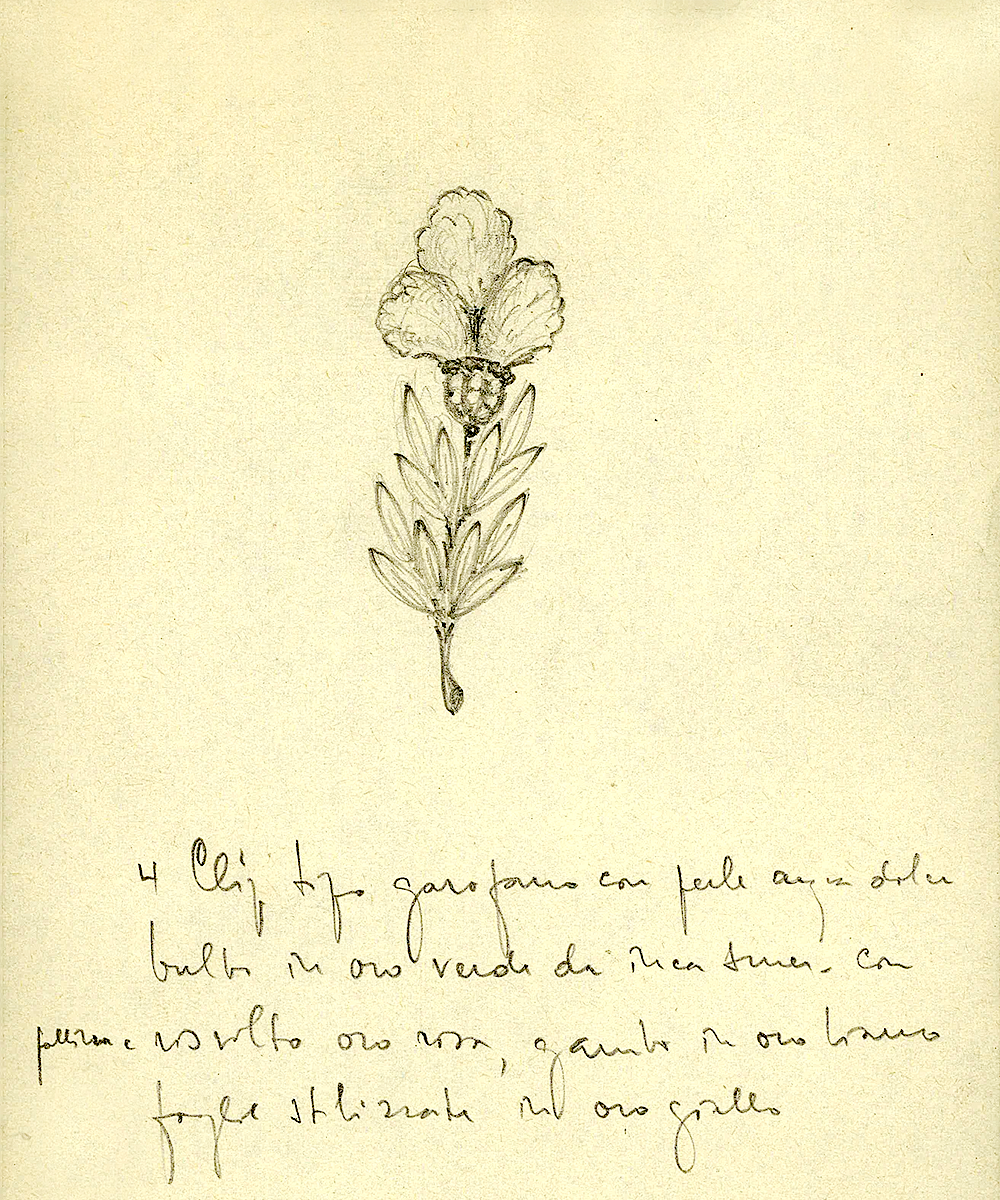 4 Clip tipo garofano con perle acqua dolce
bulbo in oro verde da incas con
e risvolto oro rosa, gambo in oro bianco
foglie stilizzate in oro giallo